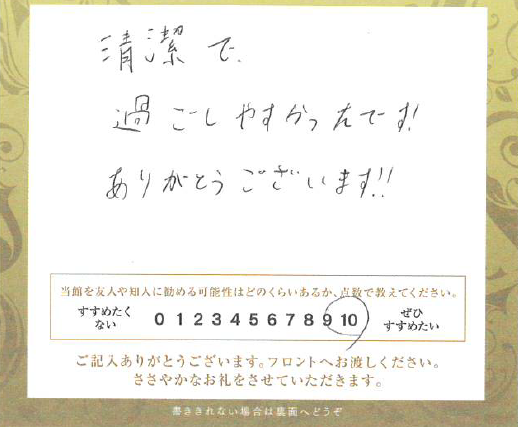 清潔で、
過ごしやすかったです!
ありがとうございます!!
当館を友人や知人に勧める可能性はどのくらいあるか、点数で教えてください。
すすめたくない 0 1 2 3 4 5 6 7 8 9 10 ぜひすすめたい
ご記入ありがとうございます。フロントへお渡しください。
ささやかなお礼をさせていただきます。
書ききれない場合は裏面へどうぞ